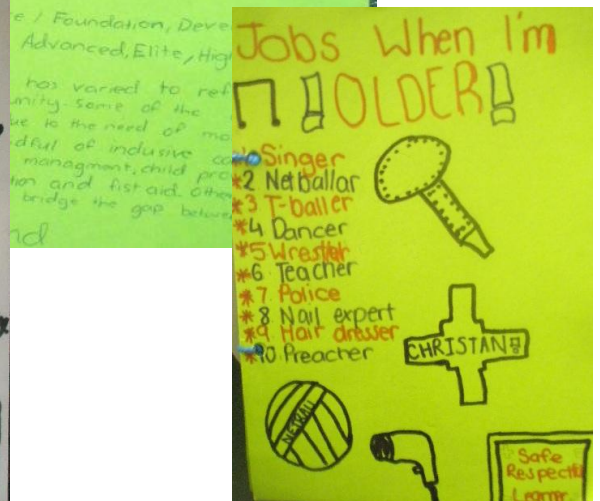 e / Foundation, Deve
Advanced, Elite, Hig
has varied to ref
unity. some of the
ue to the need of mo
dful of inclusive co
managment, child pro
tion and fist aid. Othe
bridge the gap betwe
nd
Jobs When I'm
OLDER!
Singer
*2 Netballar
*3 T-baller
*4 Dancer
*5 Wrestler
*6 Teacher
*7 Police
*8 Nail expert
*9 Hair dresser
*10 Preacher
CHRISTAN
NETBALL
Safe
Respectful
Learner